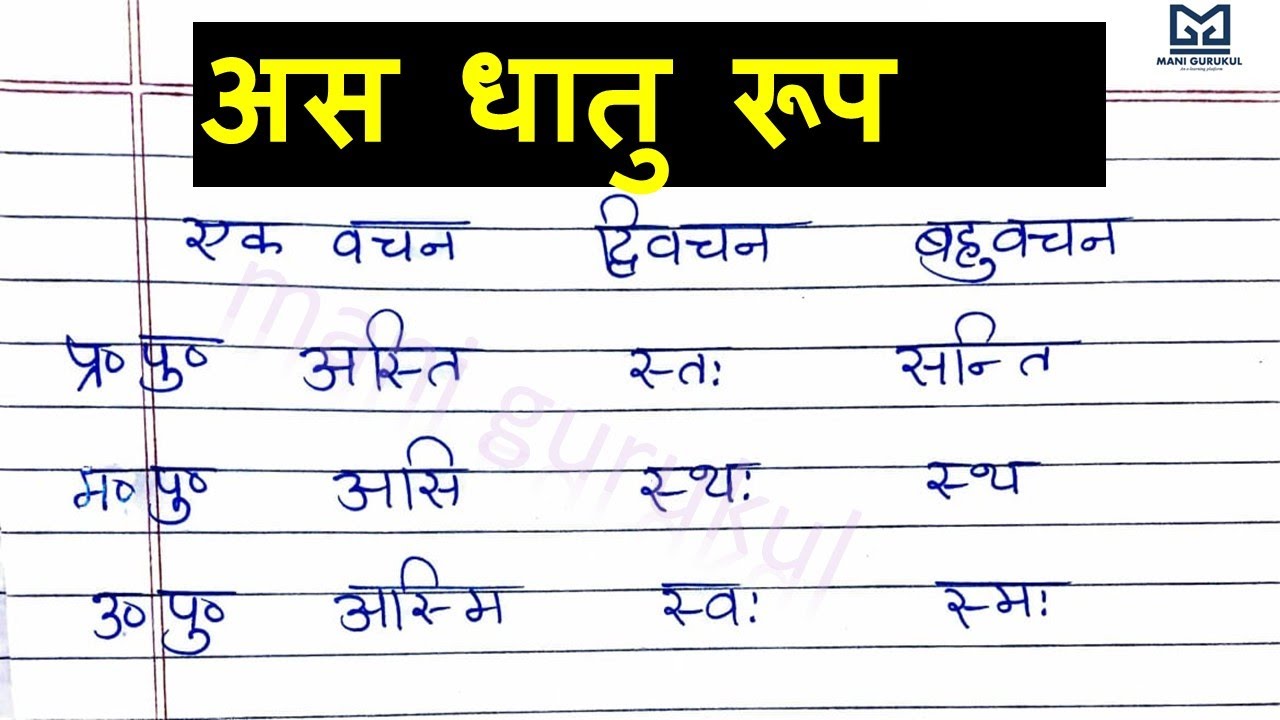 MANI GURUKUL
An e-learning platform
अस धातु रूप
एक वचन द्विवचन बहुवचन
प्र० पु० अस्ति स्तः सन्ति
म० पु० असि स्थः स्थ
उ० पु० अस्मि स्वः स्मः
mani gurukul